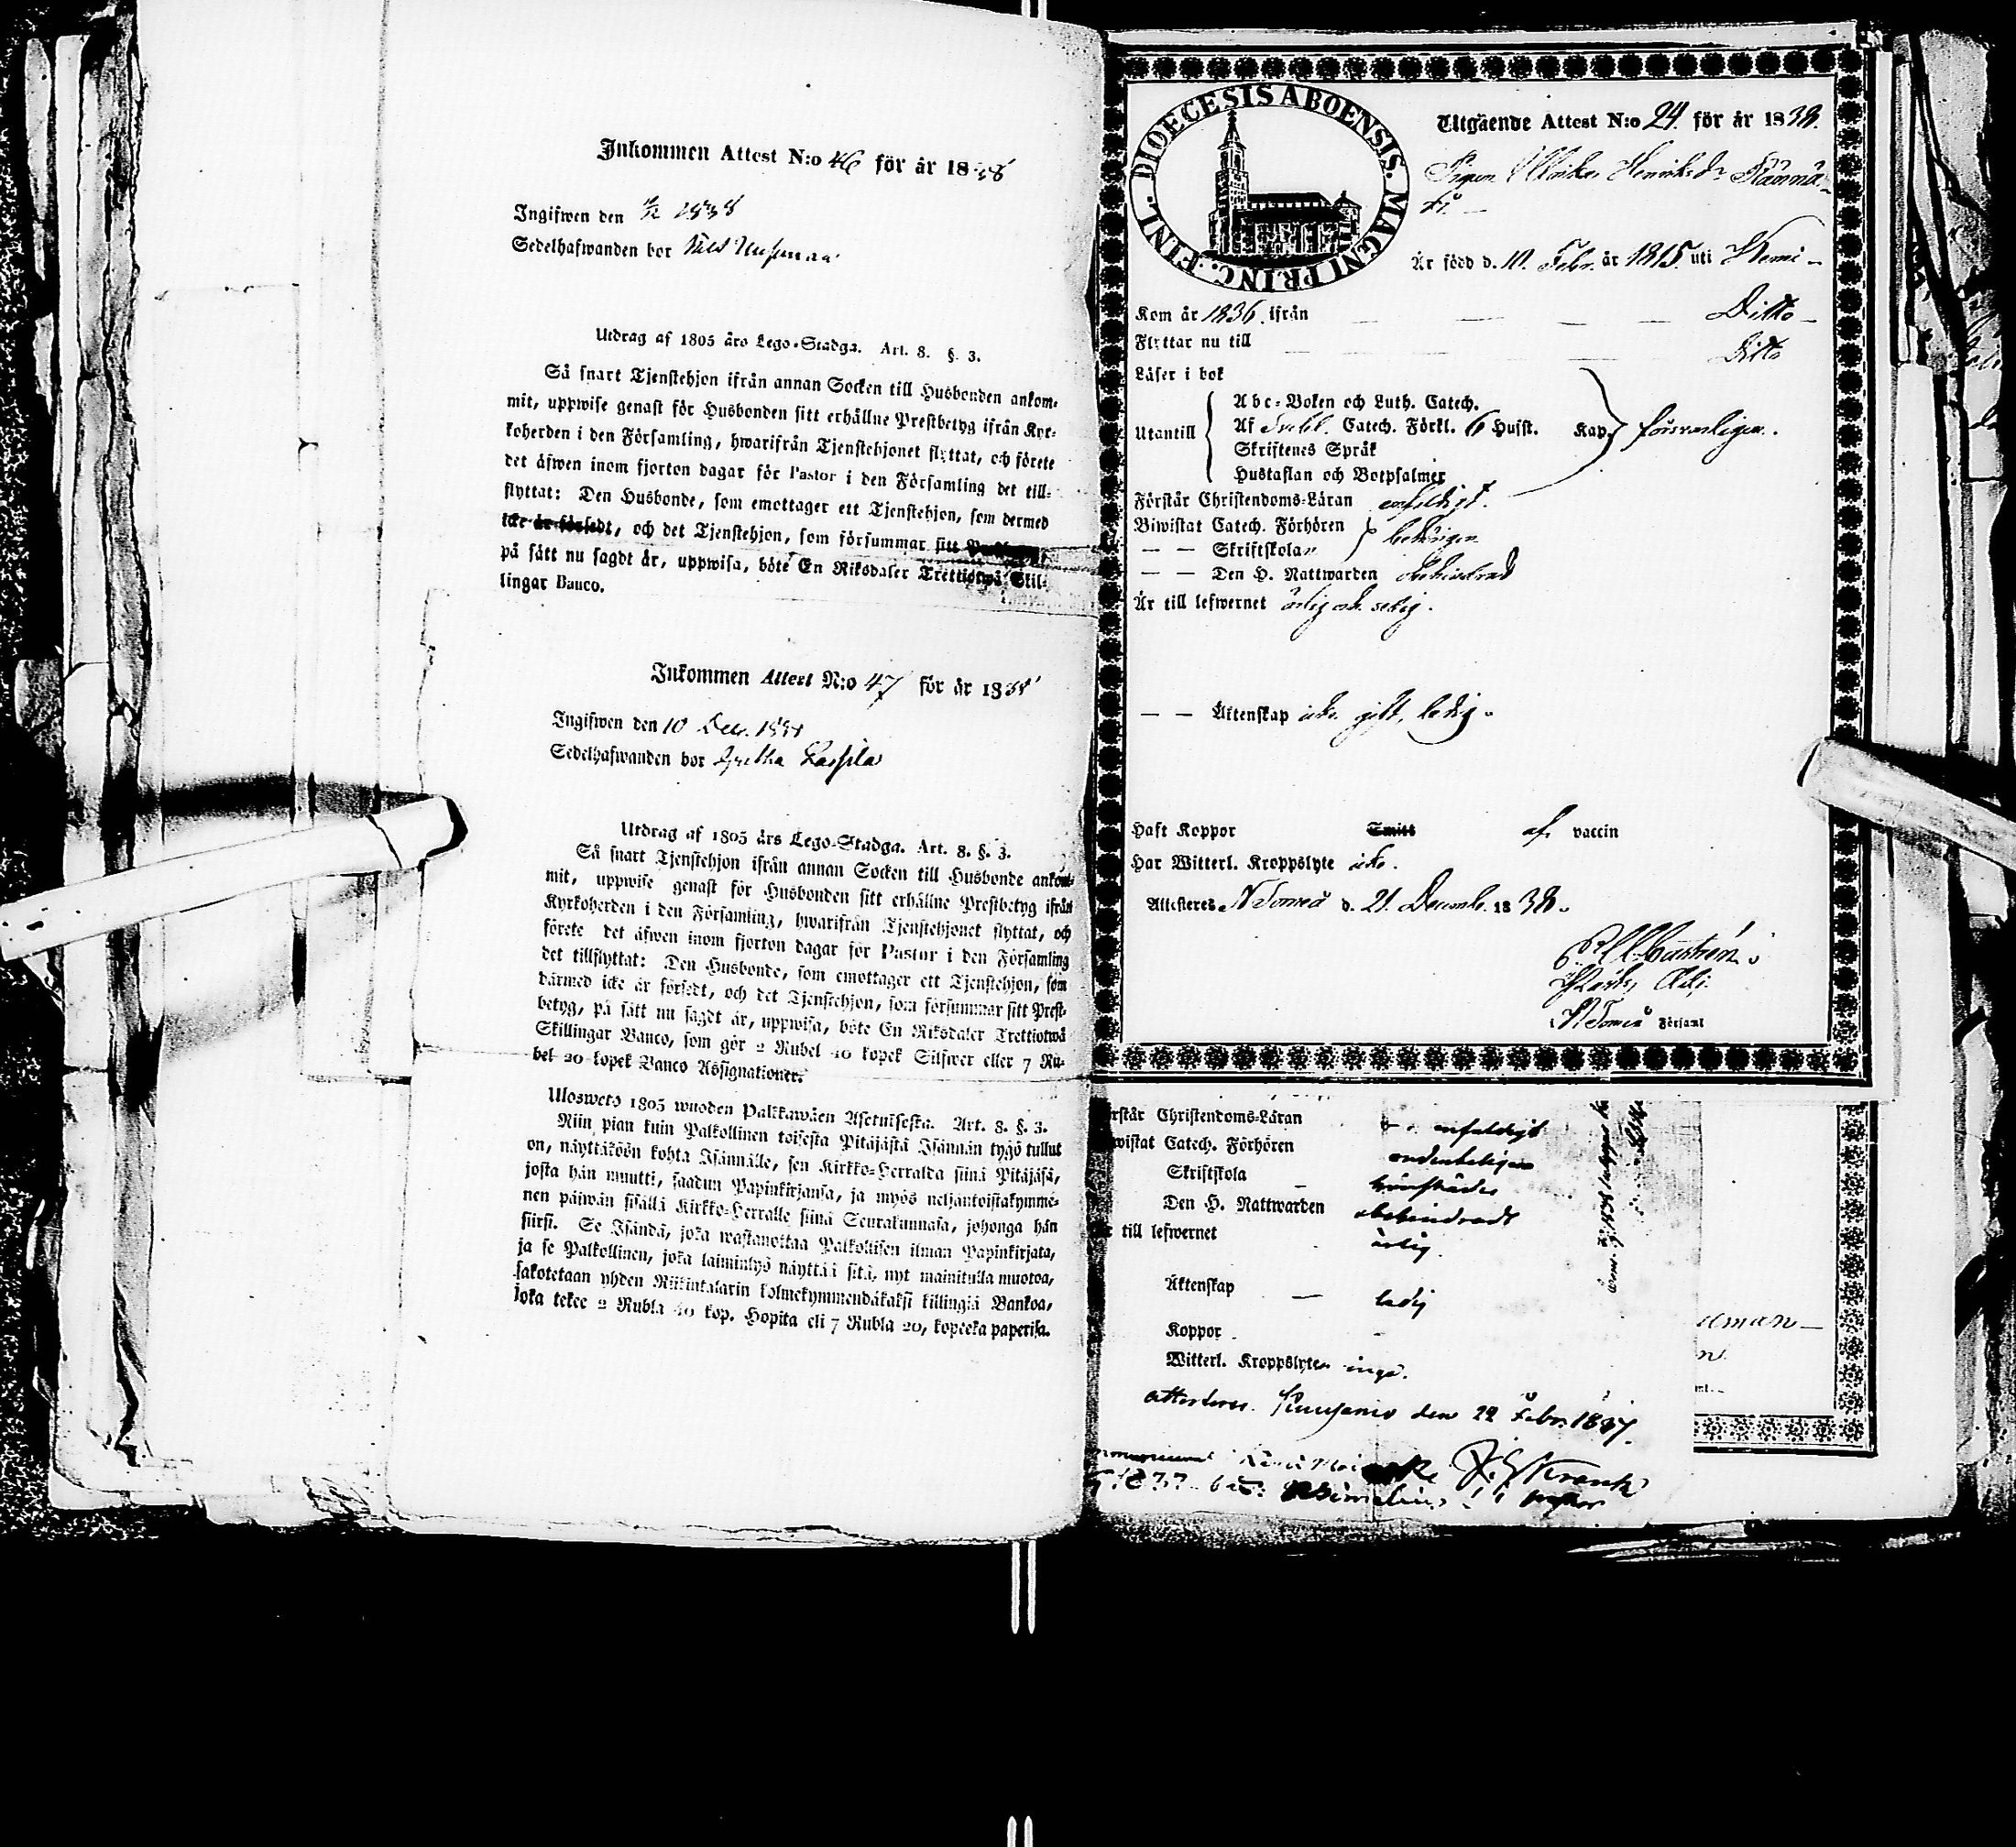 Inkommen Attest N:o 46 för år 1838
Ingifwen den 1838
Sedelhafwanden bor
Utdrag af 1805 års Lego-Stadga. Art. 8. §. 3.
Så snart Tjenstehjon ifrån annan Socken till Husbonden ankom-
mit, uppwise genast för Husbonden sitt erhållne Prestbetyg ifrån Kyr-
koherden i den Församling, hwarifrån Tjenstehjonet flyttat, och förete
det äfwen inom fjorton dagar för Pastor i den Församling det till-
flyttat: Den Husbonde, som emottager ett Tjenstehjon, som dermed
icke är försedt, och det Tjenstehjon, som försummar sitt
på sätt nu sagdt är, uppwisa, böte En Riksdaler Trettiotwå Skil-
lingar Banco.
Inkommen Attest N:o 47 för år 1838
Ingifwen den 10 Dec. 1838
Sedelhafwanden bor Gretha Lassila
Utdrag af 1805 års Lego-Stadga. Art. 8. §. 3.
Så snart Tjenstehjon ifrån annan Socken till Husbonde ankom-
mit, uppwise genast för Husbonden sitt erhållne Prestbetyg ifrån
Kyrkoherden i den Församling, hwarifrån Tjenstehjonet flyttat, och
förete det äfwen inom fjorton dagar för Pastor i den Församling
det tillflyttat: Den Husbonde, som emottager ett Tjenstehjon, som
därmed icke är försedt, och det Tjenstehjon, som försummar sitt Prest-
betyg, på sätt nu sagdt är, uppwisa, böte En Riksdaler Trettiotwå
Skillingar Banco, som gör 2 Rubel 40 kopek Silfwer eller 7 Ru-
bel 20 kopek Banco Assignationer.
Ulosweto 1805 wuoden Palkkawäen Asetuksesta. Art. 8. §. 3.
Niin pian kuin Palkollinen toisesta Pitäjästä Isännän tygö tullut
on, näyttäköön kohta Isännälle, sen Kirkko-Herralda siinä Pitäjäsä,
josta hän muutti, saadun Papinkirjansa, ja myös neljäntoistakymme-
nen päiwän sisällä Kirkko-Herralle siinä Seurakunnasa, johonga hän
siirsi. Se Isändä, joka wastanottaa Palkollisen ilman Papinkirjata,
ja se Palkollinen, joka laiminlyö näyttää sitä, nyt mainitulla muotoa,
sakotetaan yhden Riikintalarin kolmekymmendäkaksi killingiä Bankoa,
joka tekee 2 Rubla 40 kop. Hopita eli 7 Rubla 20, kopeeka paperisa.
DIOECESIS ABOENSIS. MAGNI PRINC. FINL.
Utgående Attest N:o 24. för år 1838.
Pigan Ulrika Henriksdr
Är född d. 10. Febr. år 1815. uti Kemi
Kom år 1836. ifrån Ditto
Flyttar nu till Ditto
Läser i bok
Abc-Boken och Luth. Catech.
Utantill Af Svebil. Catech. Förkl. 6 Hufst. Kap. försvarligen.
Skriftenes Språk
Hustaflan och Botpsalmer
Förstår Christendoms-Läran enfeldigt.
Biwistat Catech. Förhören behörigen
— — Skriftskolan
— — Den H. Nattwarden obehindrad
Är till lefwernet ärlig och sedig.
— — Äktenskap icke gift, ledig.
Haft Koppor Smitt af vaccin
Har Witterl. Kroppslyte icke.
Attesteras N Torneå d. 21. Decembr. 1838.
Castrén
N. Torneå Församl
rstår Christendoms-Läran enfaldigt
wistat Catech. Förhören ordenteligen
Skriftskola
Den H. Nattwarden obehindradt
till lefwernet ärlig.
Äktenskap ledig
Koppor
Witterl. Kroppslyten inga.
Attesteras. Kuusamo den 22 Febr. 1837.